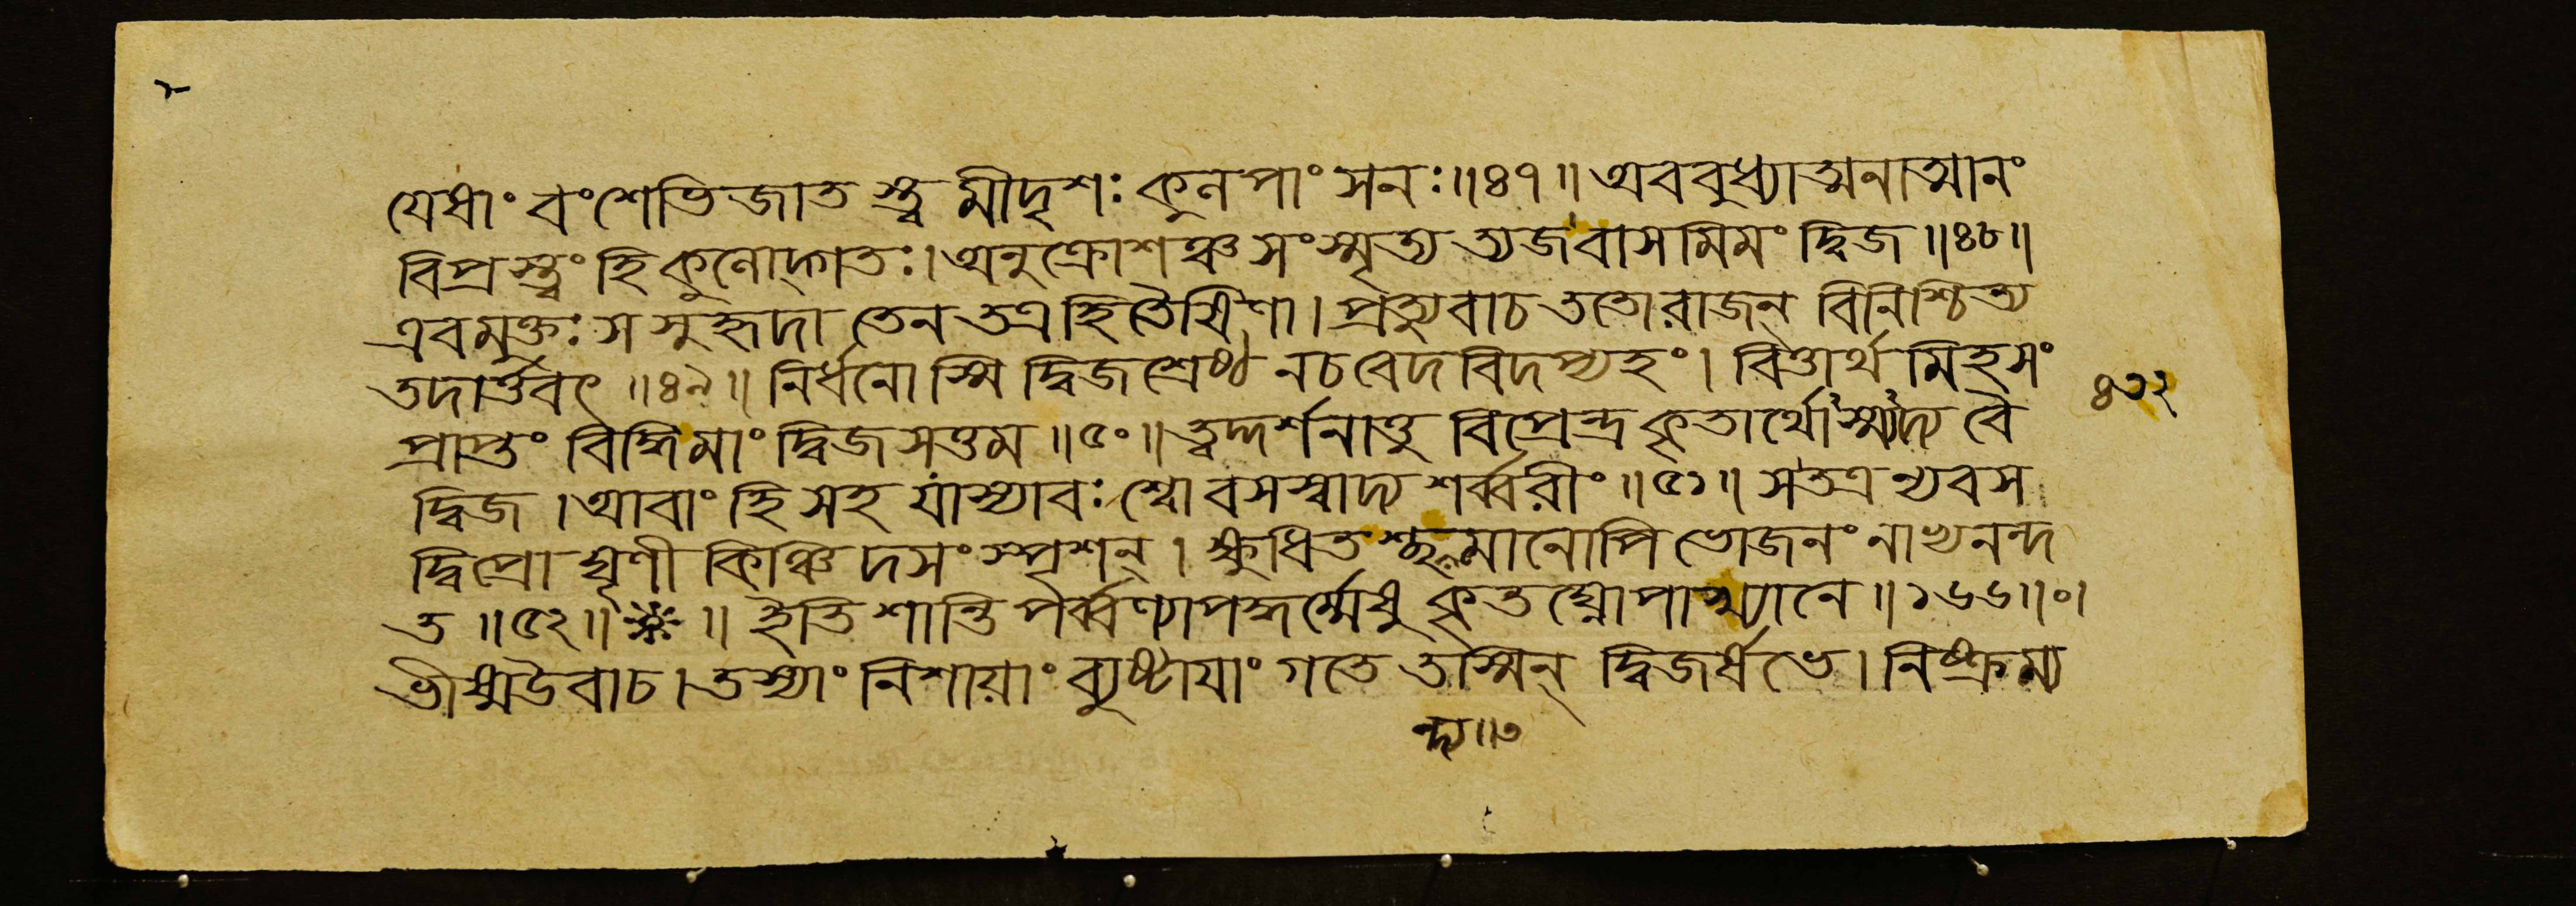 যেষাং বংশেভিজাত স্ত্ব মীদৃশঃ কুলপাংসনঃ॥৪৭॥ অববুধ্যাত্মনাত্মানং
বিপ্রস্ত্বং হি কুলোদ্গতঃ। অনুক্রোশঞ্চ সংস্মৃত্য ত্যজবাসমিমং দ্বিজ॥৪৮॥
এবমুক্তঃ স সুহৃদা তেন তত্র হিতৈষিণা। প্রত্যুবাচ ততোরাজন্ বিনিশ্চিত্য
তদার্ত্তবৎ॥৪৯॥ নির্ধনোস্মি দ্বিজশ্রেষ্ঠ নচবেদবিদপ্যহং। বিত্তার্থমিহসং
প্রাপ্তং বিদ্ধিমাং দ্বিজসত্তম॥৫০॥ ত্বদ্দর্শনাত্তু বিপ্রেন্দ্র কৃতার্থোঽস্ম্যদ্য বৈ
দ্বিজ। আবাং হি সহ যাস্যাবঃ শ্বোবসস্বাদ্য শর্ব্বরীং॥৫১॥ সতত্র ন্যবস
দ্বিপ্রো ঘৃণী কিঞ্চিদসংস্পৃশন্। ক্ষুধিতশ্ছন্দ্যমানোপি ভোজনং নাভ্যনন্দ
ত॥৫২॥ ❋ ॥ ইতি শান্তিপর্ব্বণ্যাপদ্ধর্ম্মেষু কৃতঘ্নোপাখ্যানে॥১৬৬॥০।
ভীষ্মউবাচ। তস্যাং নিশায়াং ব্যুষ্টায়াং গতে তস্মিন্ দ্বিজর্ষভে। নিষ্ক্রম্য
৪৩২